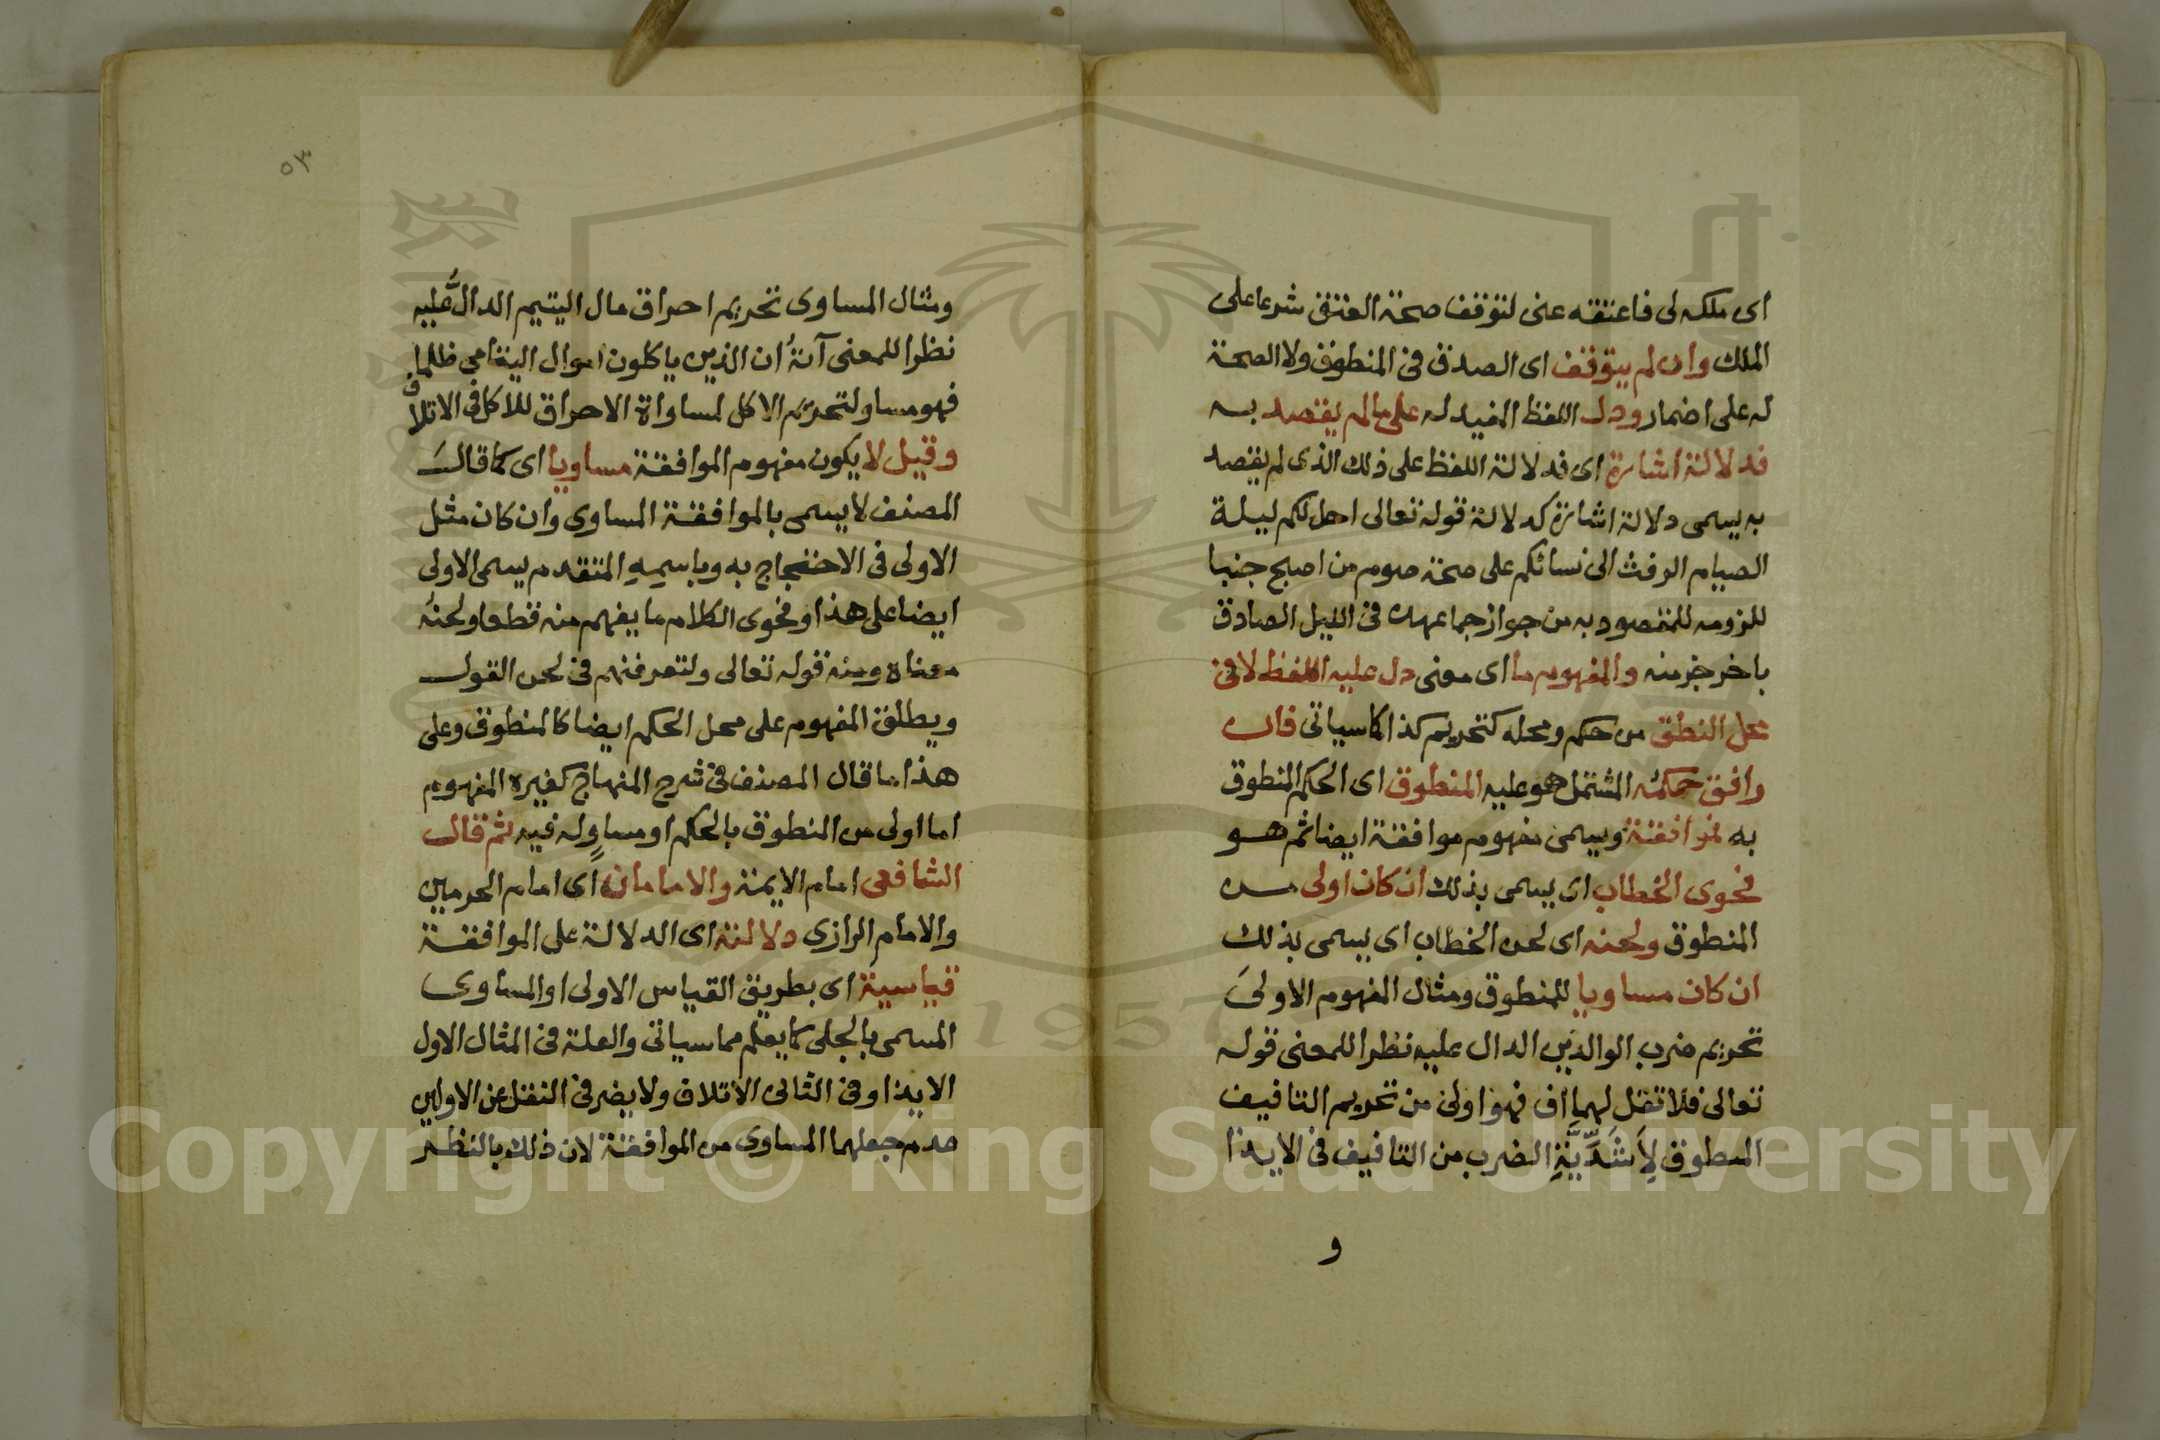 اى ملكه لى فاعتقه عنى لتوقف صحة العتق شرعا على
الملك وان لم يتوقف اى الصدق فى المنطوق ولا الصحة
له على اضمار ودل اللفظ المفيد له على ما لم يقصد به
فدلالة اشارة اى فدلالة اللفظ على ذلك الذى لم يقصد
به يسمى دلالة اشارة كدلالة قوله تعالى احل لكم ليلة
الصيام الرفث الى نسائكم على صحة صوم من اصبح جنبا
للزومه للمقصود به من جواز جماعهن فى الليل الصادق
باخر جزء منه والمفهوم ما اى معنى دل عليه اللفظ لا فى
محل النطق من حكم ومحله كتحريم كذا كما سياتى فان
وافق حكمه المشتمل هو عليه المنطوق اى الحكم المنطوق
به فموافقة ويسمى مفهوم موافقة ايضا ثم هو
فحوى الخطاب اى يسمى بذلك ان كان اولى من
المنطوق ولحنه اى لحن الخطاب اى يسمى بذلك
ان كان مساويا للمنطوق ومثال المفهوم الاولى
تحريم ضرب الوالدين الدال عليه نظرا للمعنى قوله
تعالى فلا تقل لهما اف فهو اولى من تحريم التافيف
المنطوق لِاَشَدِّيَّةِ الضرب من التافيف فى الايذا
و
٥٣
ومثال المساوى تحريم احراق مال اليتيم الدالُّ عليه
نظرا للمعنى آيةُ ان الذين ياكلون اموال اليتامى ظلما
فهو مساو لتحريم الاكل لمساواة الاحراق للاكل فى الاتلاف
وقيل لا يكون مفهوم الموافقة مساويا اى كما قال
المصنف لا يسمى بالموافقة المساوى وان كان مثل
الاولى فى الاحتجاج به وباسمِهِ المتقدم يسمى الاولى
ايضا على هذا وفحوى الكلام ما يفهم منه قطعا ولحنُه
معناه ومنه قوله تعالى ولتعرفنهم فى لحن القول
ويطلق المفهوم على محل الحكم ايضا كالمنطوق وعلى
هذا ما قال المصنف فى شرح المنهاج كغيره المفهوم
اما اولى من المنطوق بالحكم او مساوٍ له فيه ثم قال
الشافعى امام الايمة والامامان اى امام الحرمين
والامام الرازى دلالته اى الدلالة على الموافقة
قياسية اى بطريق القياس الاولى او المساوى
المسمى بالجلى كما يعلم مما سياتى والعلة فى المثال الاول
الايذا وفى الثانى الاتلاف ولا يضر فى النقل عن الاولين
عدم جعلهما المساوى من الموافقة لان ذلك بالنظر
1957
Copyright © King Saud University